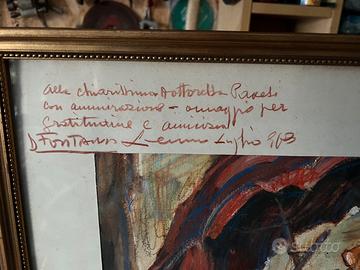 alla chiarissima Dottoressa
con ammirazione - omaggio per
gratitudine e amicizia
D Fontana Luglio 963
subito